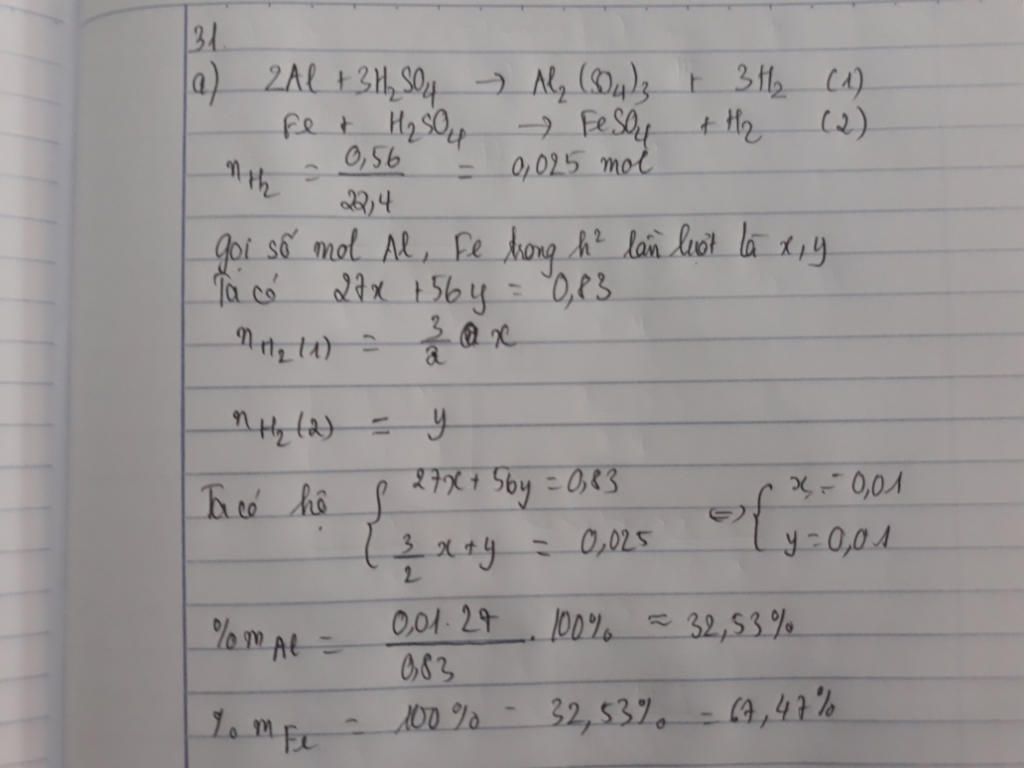 31.
a) 2Al + 3H₂SO₄ → Al₂(SO₄)₃ + 3H₂ (1)
Fe + H₂SO₄ → FeSO₄ + H₂ (2)
n_H₂ = 0,56/22,4 = 0,025 mol
gọi số mol Al, Fe trong h² lần lượt là x, y
Ta có 27x + 56y = 0,83
n_H₂(1) = 3/2 x
n_H₂(2) = y
Ta có hệ { 27x + 56y = 0,83 ⇔ { x = 0,01
3/2 x + y = 0,025 y = 0,01
%m_Al = 0,01.27/0,83 . 100% = 32,53%
%m_Fe = 100% - 32,53% = 67,47%